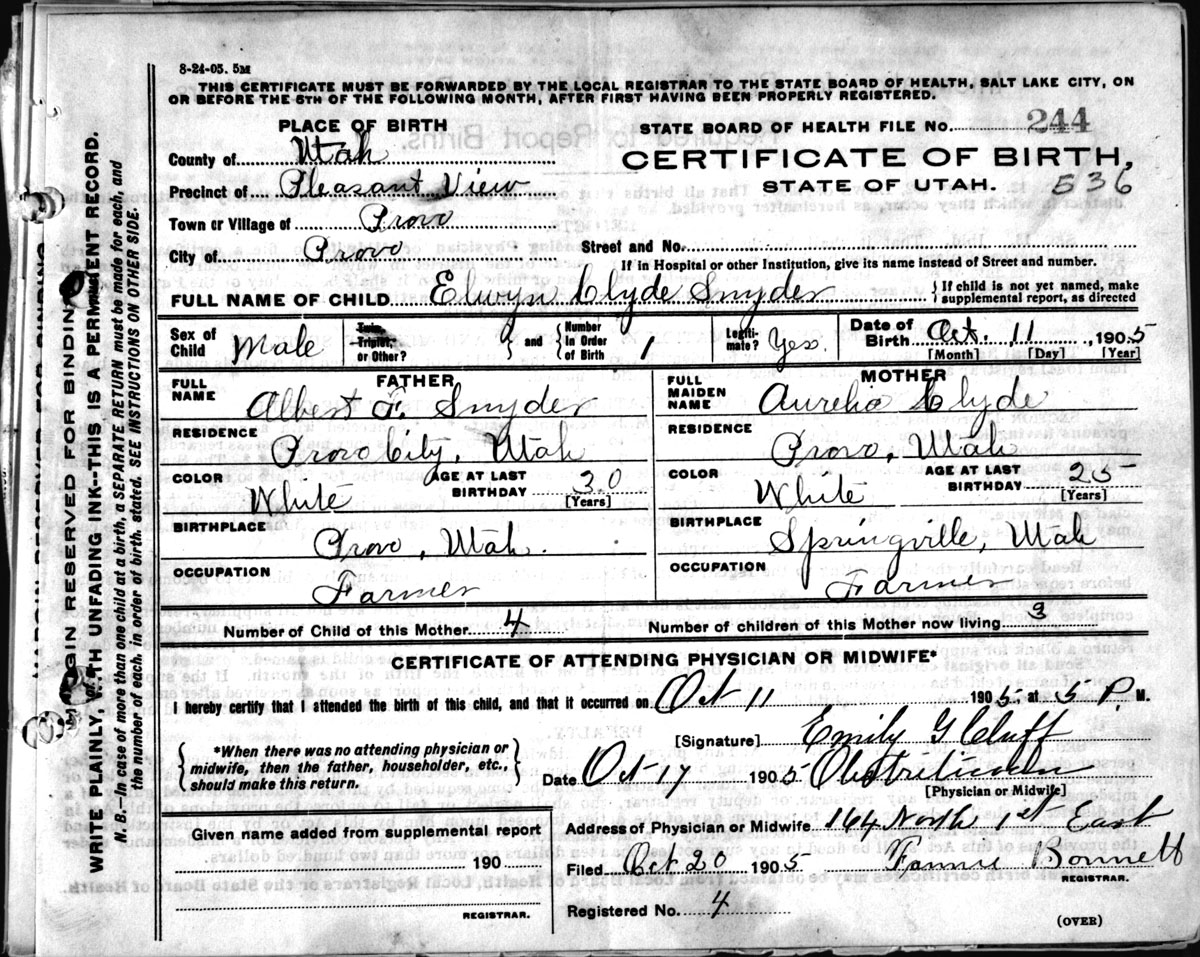 8-24-05. 5M
THIS CERTIFICATE MUST BE FORWARDED BY THE LOCAL REGISTRAR TO THE STATE BOARD OF HEALTH, SALT LAKE CITY, ON
OR BEFORE THE 5TH OF THE FOLLOWING MONTH, AFTER FIRST HAVING BEEN PROPERLY REGISTERED.
PLACE OF BIRTH
STATE BOARD OF HEALTH FILE NO. 244
County of Utah
CERTIFICATE OF BIRTH,
Precinct of Pleasant View
STATE OF UTAH. 536
Town or Village of Provo
City of Provo Street and No.
If in Hospital or other Institution, give its name instead of Street and number.
FULL NAME OF CHILD Elwyn Clyde Snyder { If child is not yet named, make supplemental report, as directed
Sex of Child Male Twin, Triplet, or Other? } and { Number In Order of Birth 1 Legiti-mate? Yes. Date of Birth Oct. 11, 1905
[Month] [Day] [Year]
FATHER MOTHER
FULL NAME Albert F. Snyder FULL MAIDEN NAME Aurelia Clyde
RESIDENCE Provo City, Utah RESIDENCE Provo, Utah
COLOR White AGE AT LAST BIRTHDAY 30 [Years] COLOR White AGE AT LAST BIRTHDAY 25 [Years]
BIRTHPLACE Provo, Utah. BIRTHPLACE Springville, Utah
OCCUPATION Farmer OCCUPATION Farmer
Number of Child of this Mother 4 Number of children of this Mother now living 3
CERTIFICATE OF ATTENDING PHYSICIAN OR MIDWIFE*
I hereby certify that I attended the birth of this child, and that it occurred on Oct 11 1905, at 5 P. M.
[Signature] Emily G Cluff
{ *When there was no attending physician or midwife, then the father, householder, etc., should make this return. }
Date Oct 17 1905
[Physician or Midwife]
Given name added from supplemental report
Address of Physician or Midwife 164 North 1st East
190
Filed Oct 20 1905 Fannie Bonnett
REGISTRAR.
REGISTRAR.
Registered No. 4
(OVER)
MARGIN RESERVED FOR BINDING
MARGIN RESERVED FOR BINDING
WRITE PLAINLY, WITH UNFADING INK--THIS IS A PERMANENT RECORD.
N. B.—In case of more than one child at a birth, a SEPARATE RETURN must be made for each, and
the number of each, in order of birth, stated. SEE INSTRUCTIONS ON OTHER SIDE.